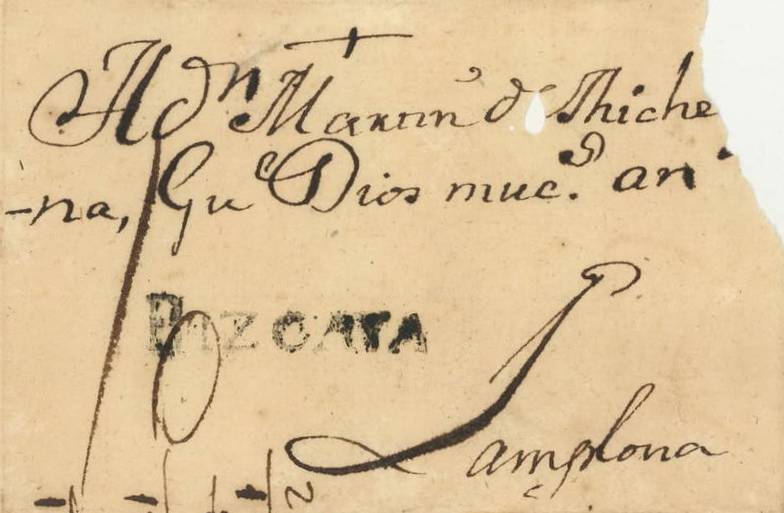 A dn Martin d Thiche
-na, Gue Dios mucs. an
BIZCAYA
Pamplona